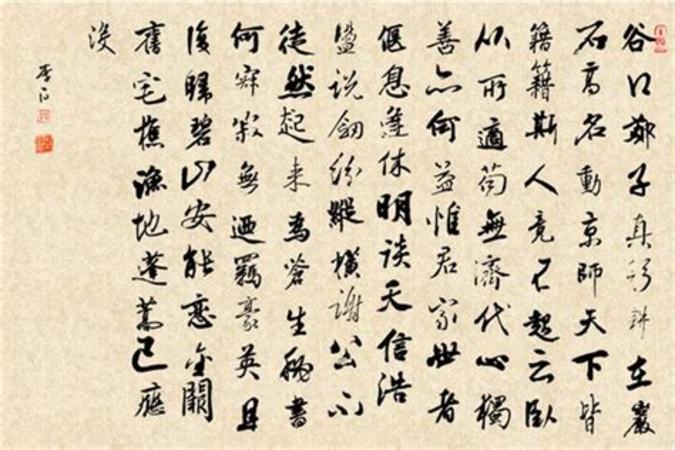 谷口鄭子真躬耕在巖
石高名動京師天下皆
籍籍斯人竟不起云臥
从所適苟無濟代心獨
善亦何益惟君家世者
偃息逢休明談天信浩
盪說劍紛縱橫謝公不
徒然起来為蒼生秘書
何寂寂無迺羈豪英且
復歸碧山安能戀金闕
舊宅樵漁地蓬蒿已應
没